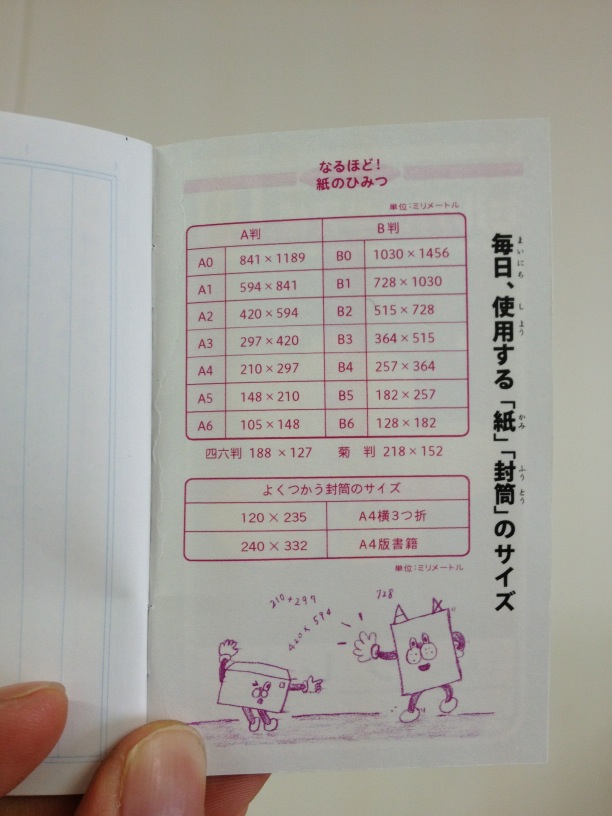 なるほど!
紙のひみつ
単位:ミリメートル
A判 B判
A0 841×1189 B0 1030×1456
A1 594×841 B1 728×1030
A2 420×594 B2 515×728
A3 297×420 B3 364×515
A4 210×297 B4 257×364
A5 148×210 B5 182×257
A6 105×148 B6 128×182
四六判 188×127 菊 判 218×152
よくつかう封筒のサイズ
120×235 A4横3つ折
240×332 A4版書籍
単位:ミリメートル
毎日、使用する「紙」「封筒」のサイズ
まいにち しよう かみ ふうとう
210×297
420×594
728